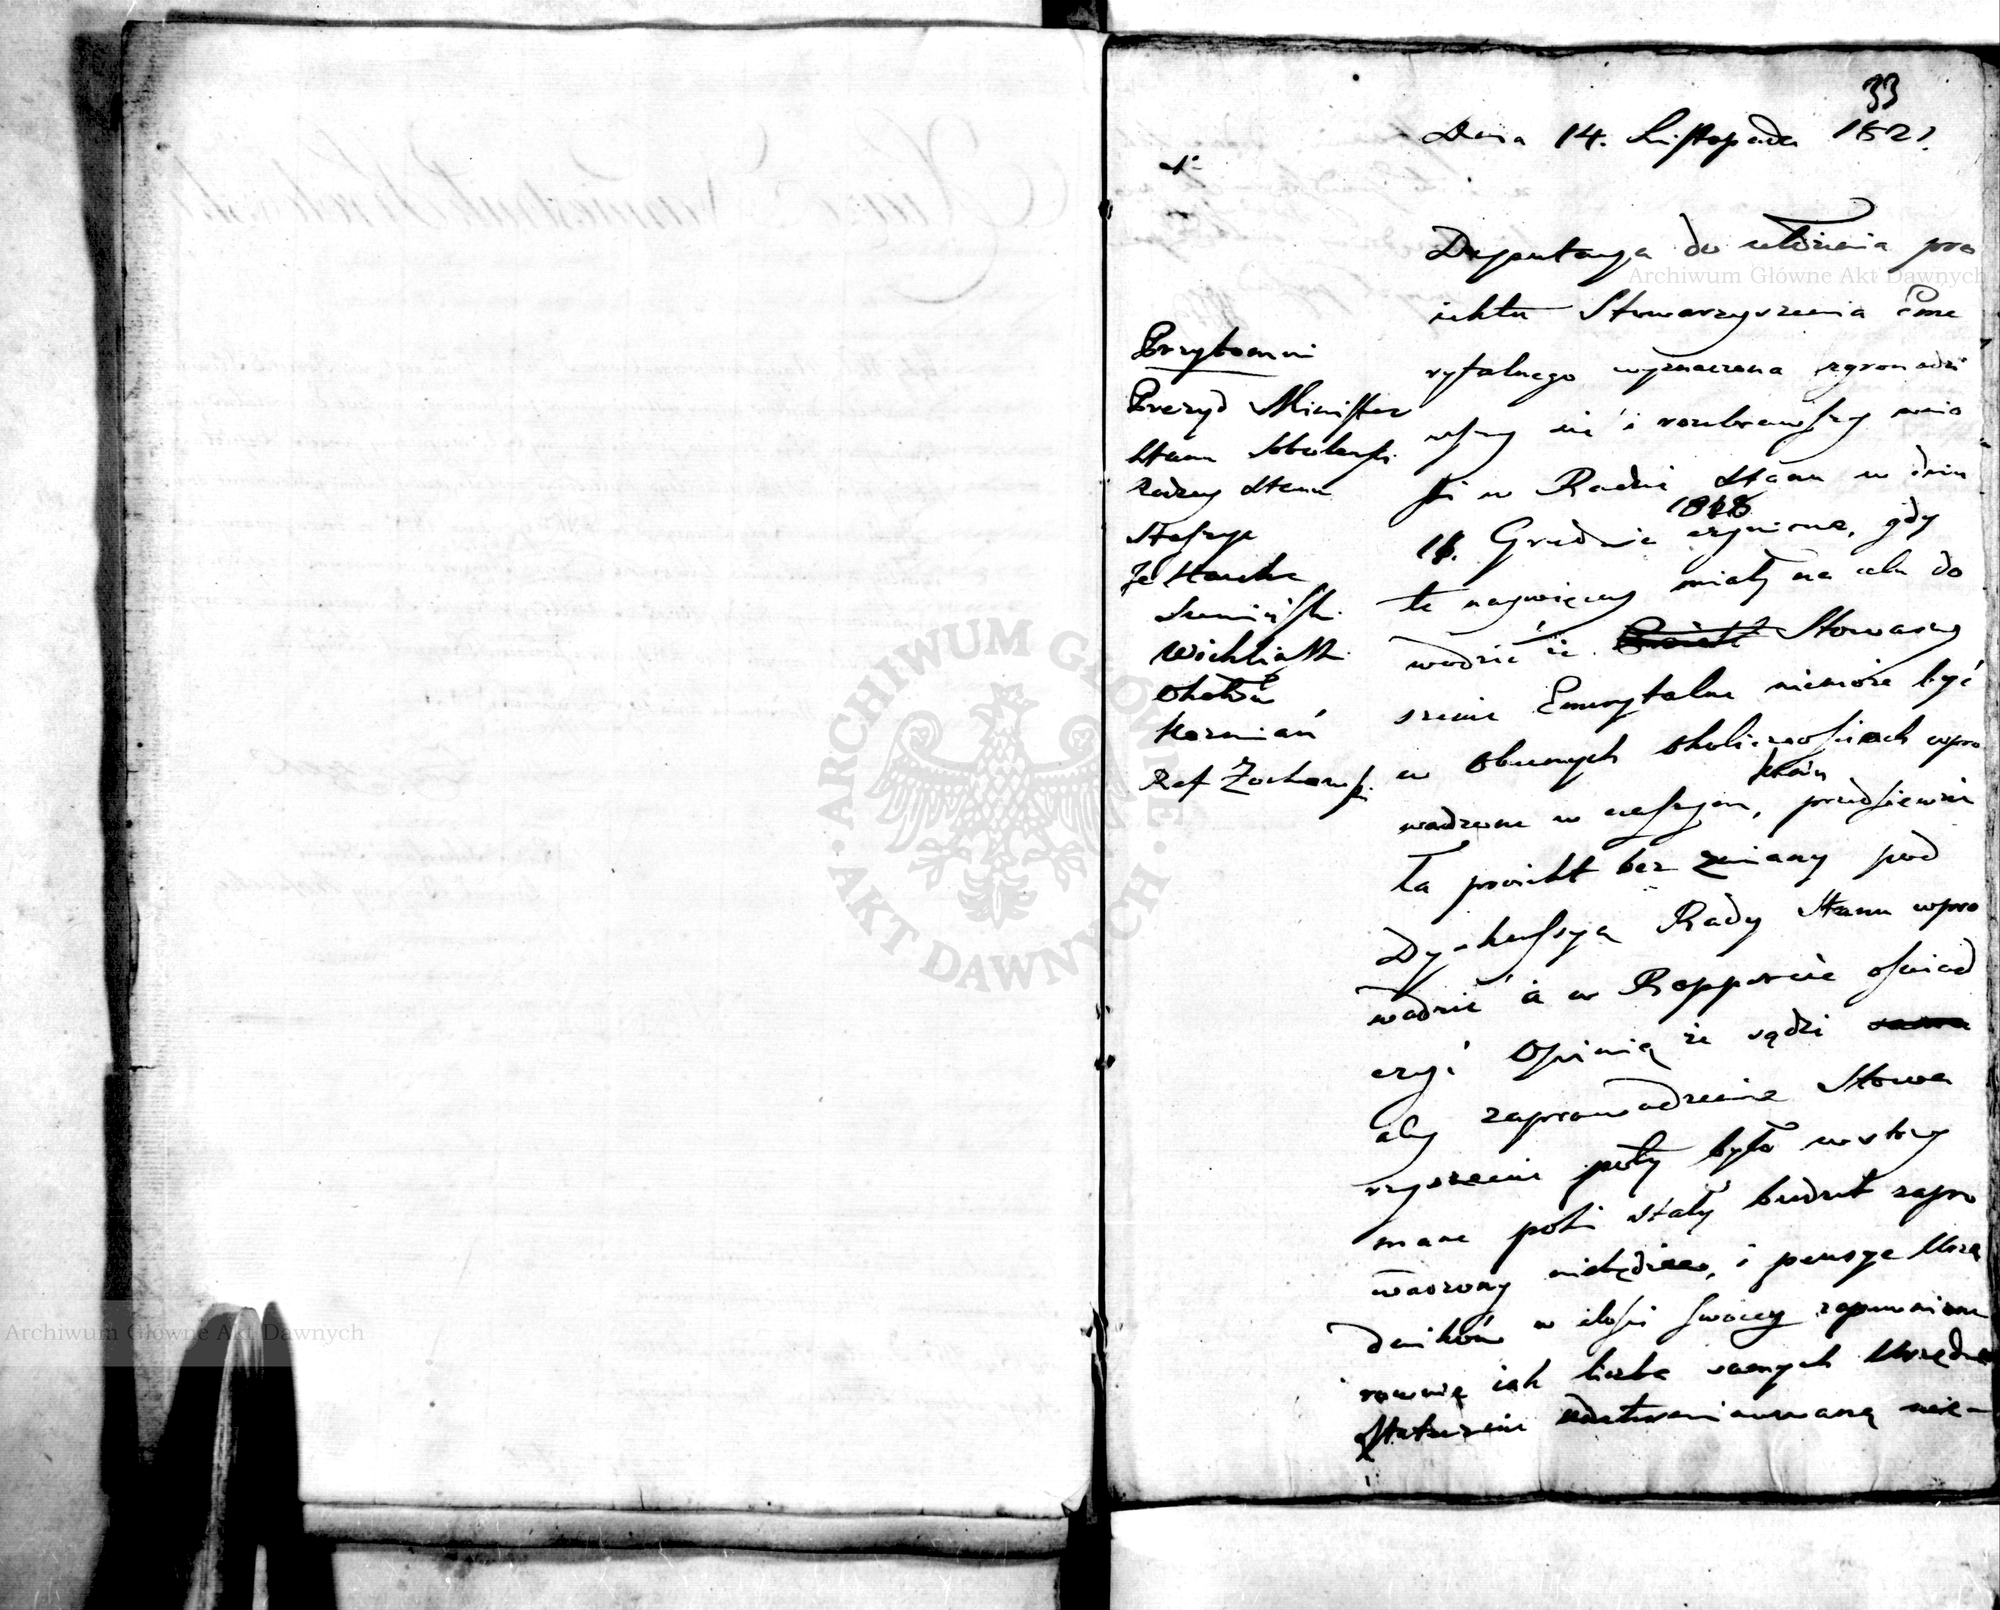 33
Dnia 14. Listopada 1821.
Deputacya do ułożenia pro
iektu Stowarzyszenia Eme
rytalnego wyznaczona zgromadzi
wszy się i rozebrawszy wnio
ski w Radzie Stanu w dniu
16. Grudnia 1818 czynione, gdy
te naywięcey miały na celu do
wodzić że Stowarzy
szenie Emerytalne niemoże być
w obecnych okolicznościach wpro
wadzone w naszym kraiu, przedsiewzie
ła proiekt bez zmiany pod
Dyskussyą Rady Stanu wpro
wadzić a w Rapporcie oświad
czyć Opinią że sądzi
aby zaprowadzenie Stowa
rzyszenia póty było wstrzy
mane poki stały budżet zapro
wadzony niebędzie, i pensye Urzę
dników w ilości swoiey zapewnione
rownie iak liczba samych Urzędni
Przytomni
Prezyd Minister
Stanu Sobolewski
Radzcy Stanu
Staszyc
Okołów
Koźmian
Ref Żochowski
Archiwum Główne Akt Dawnych
ARCHIWUM GŁÓWNE
AKT DAWNYCH
Archiwum Główne Akt Dawnych